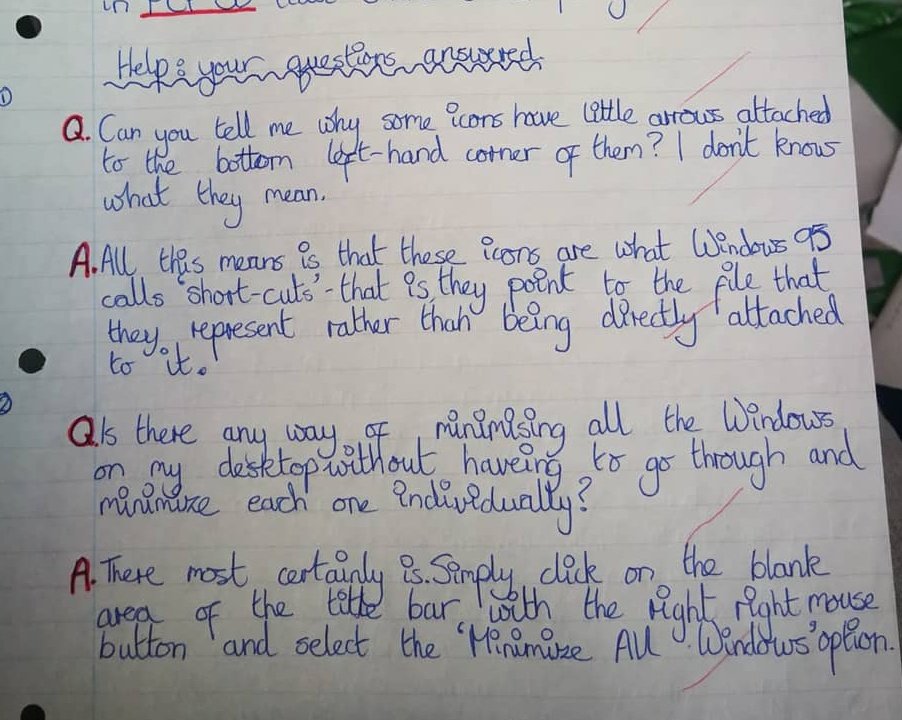 in
Help: your questions answered.
①
Q. Can you tell me why some icons have little arrows attached
to the bottom left-hand corner of them? I don't know
what they mean.
A. All this means is that these icons are what Windows 95
calls 'short-cuts' - that is, they point to the file that
they represent rather than being directly attached
to it.
②
Q. Is there any way of minimising all the Windows
on my desktop without haveing to go through and
minimize each one individually?
A. There most certainly is. Simply click on the blank
area of the title bar with the right right mouse
button and select the 'Minimize All Windows' option.